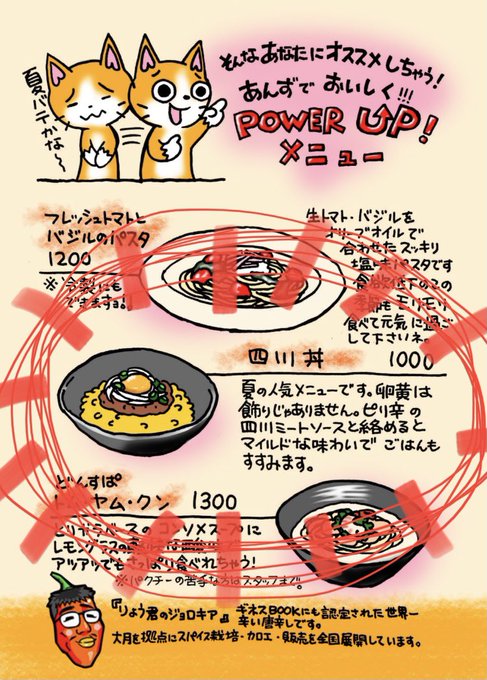 そんなあなたにオススメしちゃう!
あんずで おいしく!!!
POWER UP!
メニュー
夏バテかな〜
フレッシュトマトと
バジルのパスタ
1200
※冷製にも
できますよ!
生トマト・バジルを
オリーブオイルで
合わせたスッキリ
塩トマトパスタです
食欲低下のこの
季節も モリモリ
食べて元気に過ご
して下さいネ。
四川丼 1000
夏の人気メニューです。卵黄は
飾りじゃありません。ピリ辛の
四川ミートソースと絡めると
マイルドな味わいで ごはんも
すすみます。
どんすぱ
ヤム・クン 1300
コンソメスープに
レモングラスの
アツアツでも さっぱり食べれちゃう!
※パクチーの苦手な方はスタッフまで。
『りょう君のジョロキア』 ギネスBOOKにも認定された世界一
辛い唐辛しです。
大月を拠点にスパイス栽培・カロエ・販売を全国展開しています。